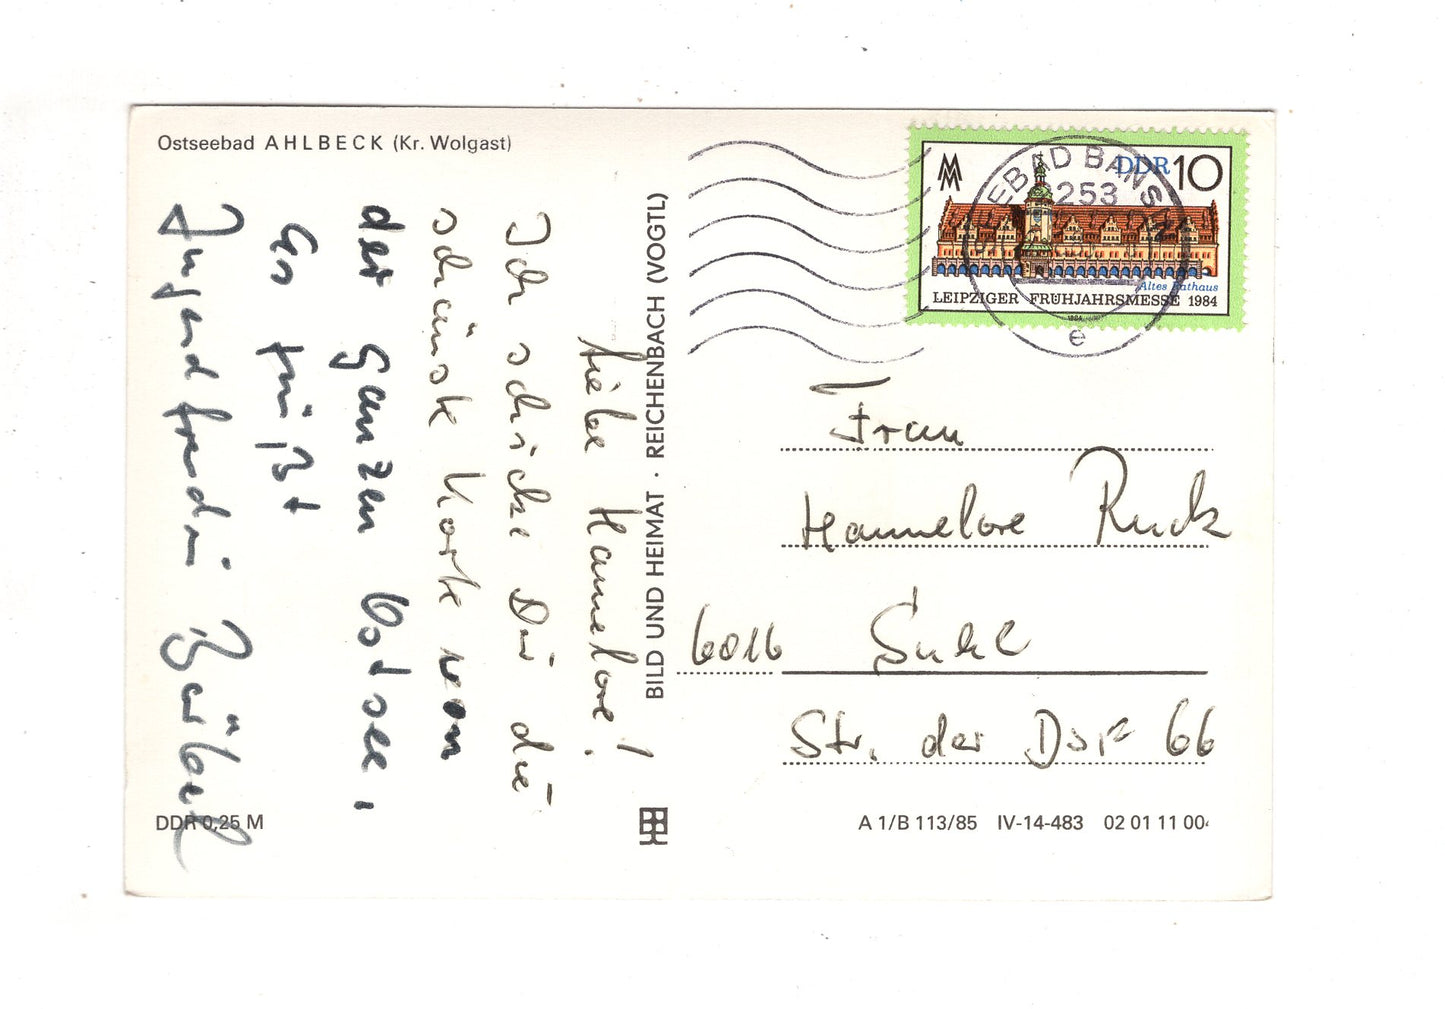 Ostseebad AHLBECK (Kr. Wolgast)
Liebe Hannelore!
Ich schicke Dir die
schönste Karte von
der ganzen Ostsee,
Es grüßt
Jugendfreundin Bärbel
DDR 0,25 M
BILD UND HEIMAT · REICHENBACH (VOGTL)
MM
DDR 10
Altes Rathaus
LEIPZIGER FRÜHJAHRSMESSE 1984
SEEBAD BANSIN
2253
e
Frau
Hannelore Ruck
6016 Suhl
Str. der DSF 66
A 1/B 113/85 IV-14-483 02 01 11 004